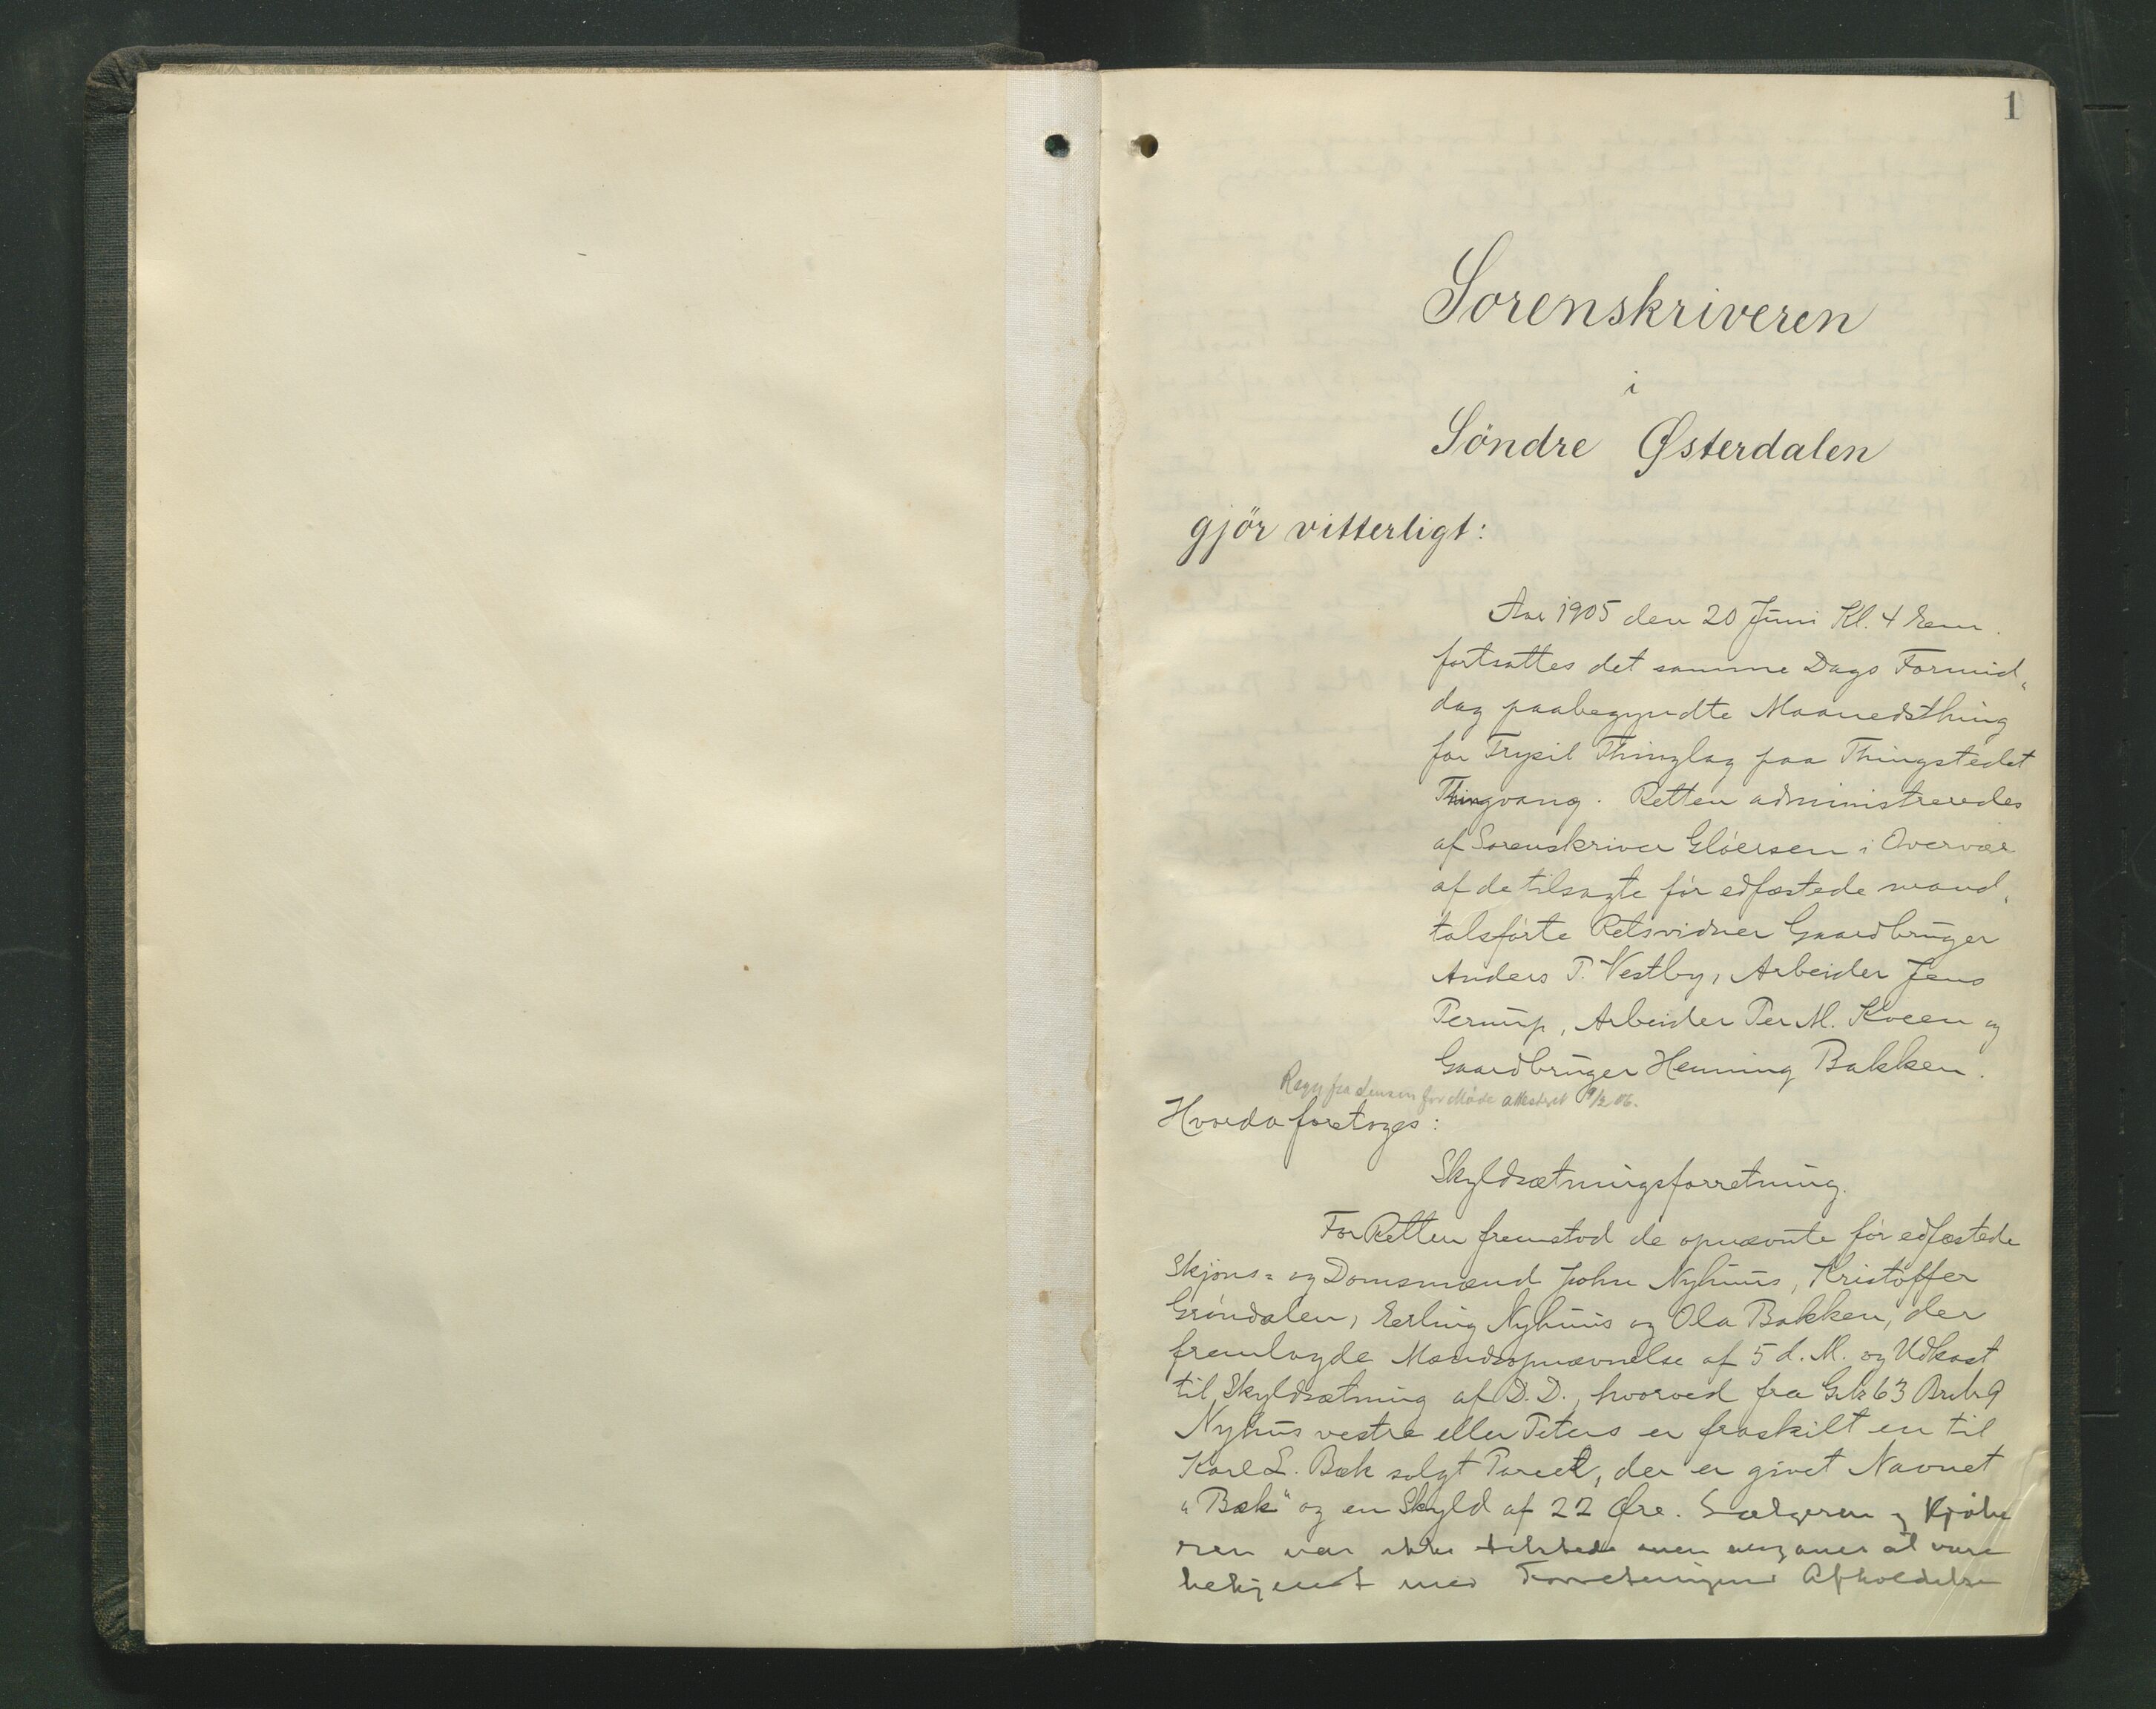 1
Sorenskriveren
i
Söndre Østerdalen
gjör vitterligt:
Aar 1905 den 20 Juni Kl. 4 Em.
fortsattes det samme Dags Formid„
dag paabegyndte Maanedsthing
for Trysil Thinglag paa Thingstedet
Thingvang. Retten administreredes
af Sorenskriver Glöersen i Overvær
af de tilsagte för edfæstede mand„
talsförte Retsvidner Gaardbruger
Anders T. Vestby, Arbeider Jens
Pernup, Arbeider Per M. Kveen og
Gaardbruger Henning Bakken.
for Möde attesteret 9/2 06.
Hvorda foretoges:
Skyldsætningsforretning.
For Retten fremstod de opnævnte för edfæstede
Skjöns= og Domsmænd John Nyhuus, Kristoffer
Gröndalen, Erling Nyhuus og Ola Bakken, der
fremlagde Mændsopnævnelse af 5 d. M. og Udkast
til Skyldsætning af D.D., hvorved fra Gnr 63 Brnr 9
Nyhus vestre eller Peters er fraskilt en til
Karl L. Bæk solgt Parcel, der er givet Navnet
„Bæk" og en Skyld af 22 Øre. Sælgeren og Kjöbe
ren var ikke tilstede men at være
bekjendt med Forretningens Afholdelse